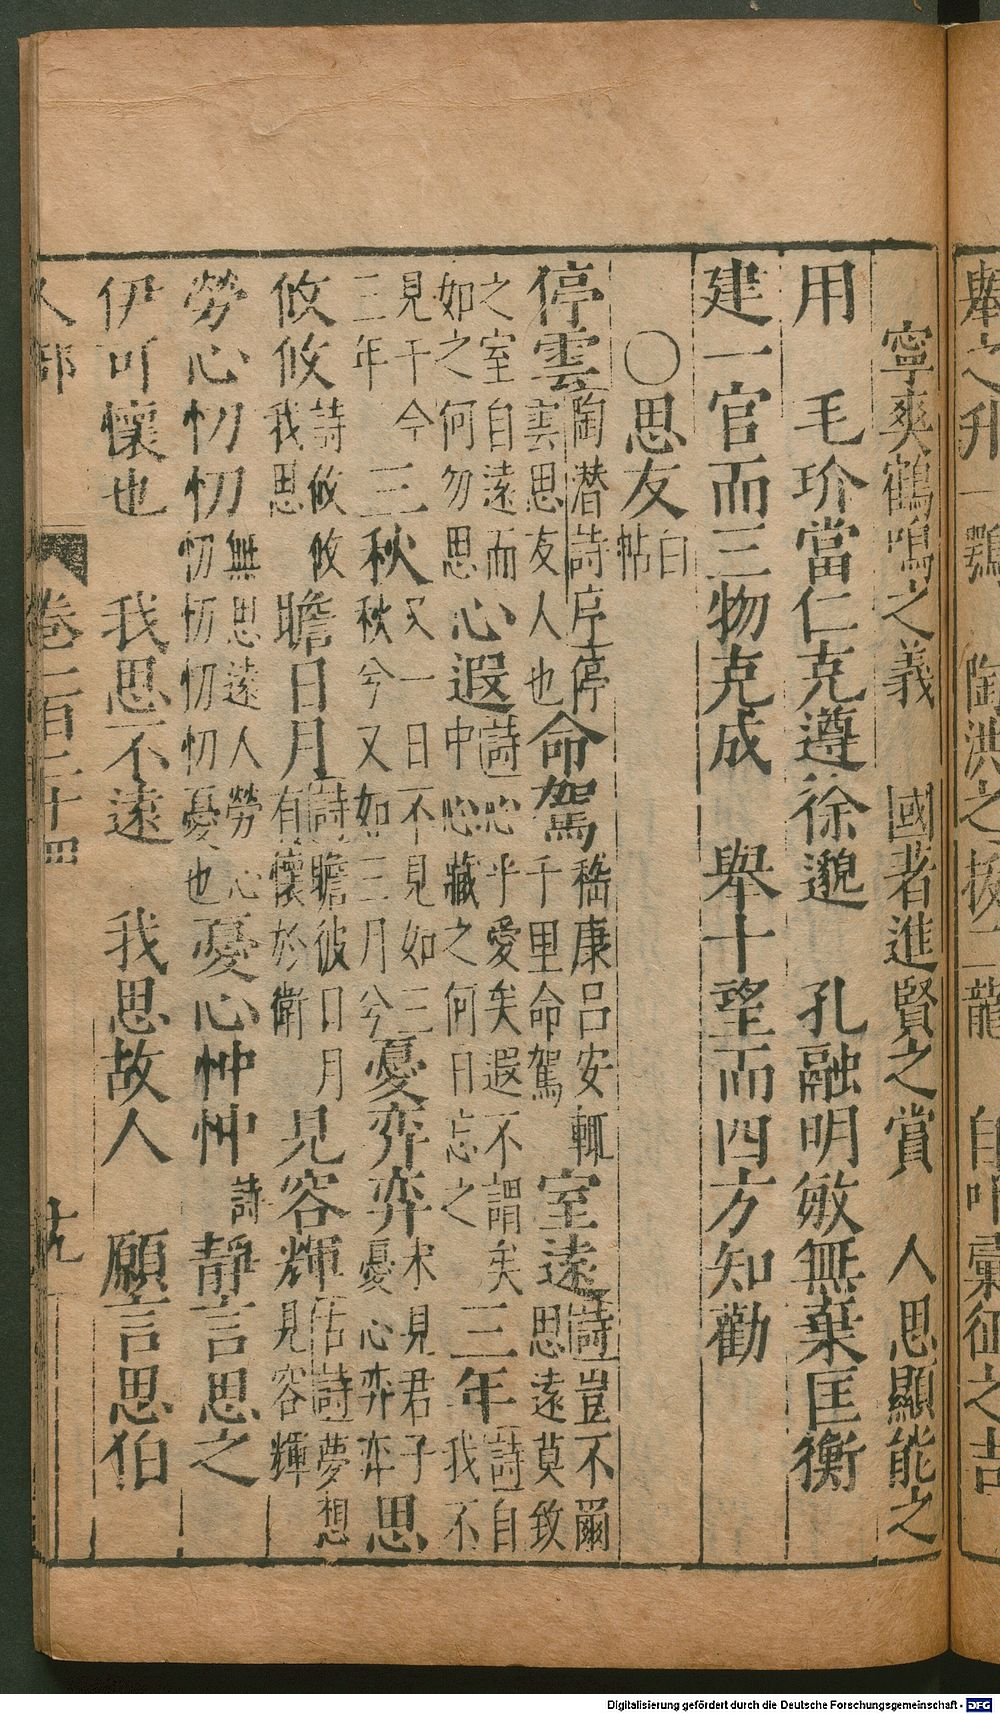 舉之升一鶚　陶洪之拔二龍　自叶彙征之吉
寧爽鶴鳴之義　國者進賢之賞　人思顯能之
用　毛玠當仁克遵徐邈　孔融明敏無棄匡衡
建一官而三物克成　舉十望而四方知勸
○思友白帖
停雲陶潜詩序停雲思友人也命駕嵇康呂安輒千里命駕　室遠詩豈不爾思遠莫致
之室自遠而如之何勿思心遐詩心乎愛矣遐不謂矣中心藏之何日忘之三年詩自我不
見于今三年三秋又一日不見如三秋兮又如三月兮憂弈弈未見君子憂心弈弈思
攸攸詩攸攸我思　瞻日月詩瞻彼日月有懷於衛　見容輝古詩夢想見容輝
勞心忉忉無思遠人勞心忉忉忉忉憂也憂心忡忡詩　靜言思之
伊可懷也　我思不遠　我思故人　願言思伯
人部　卷二百二十四
Digitalisierung gefördert durch die Deutsche Forschungsgemeinschaft - DFG